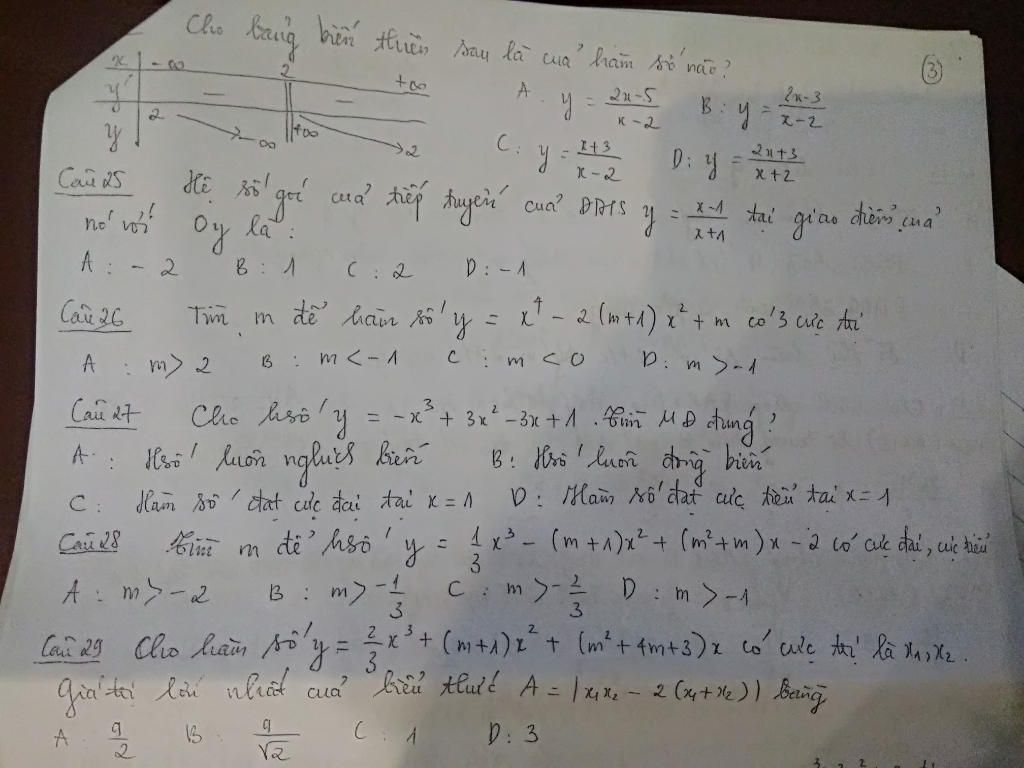 Cho bảng biến thiên sau là của hàm số nào?
x -∞ 2 +∞
y' - -
y 2 -∞ +∞ 2
A. y = \frac{2x-5}{x-2} B: y = \frac{2x-3}{x-2}
C: y = \frac{x+3}{x-2} D: y = \frac{2x+3}{x+2}
③
Câu 25 Hệ số góc của tiếp tuyến của ĐTHS y = \frac{x-1}{x+1} tại giao điểm của
nó với Oy là:
A: -2 B: 1 C: 2 D: -1
Câu 26 Tìm m để hàm số y = x⁴ - 2(m+1)x² + m có 3 cực trị
A: m > 2 B: m < -1 C: m < 0 D: m > -1
Câu 27 Cho hsố y = -x³ + 3x² - 3x + 1. Tìm MĐ đúng?
A: Hsố luôn nghịch biến B: Hsố luôn đồng biến
C: Hàm số đạt cực đại tại x = 1 D: Hàm số đạt cực tiểu tại x = 1
Câu 28 Tìm m để hsố y = \frac{1}{3}x³ - (m+1)x² + (m²+m)x - 2 có cực đại, cực tiểu
A: m > -2 B: m > -\frac{1}{3} C: m > -\frac{2}{3} D: m > -1
Câu 29 Cho hàm số y = \frac{2}{3}x³ + (m+1)x² + (m²+4m+3)x có cực trị là x₁, x₂.
Giá trị lớn nhất của biểu thức A = |x₁x₂ - 2(x₁+x₂)| bằng
A: \frac{9}{2} B: \frac{9}{√2} C: 1 D: 3